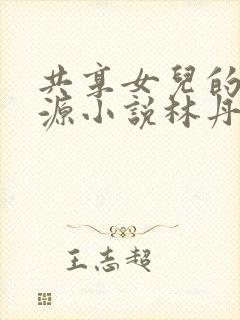 共享女兒的
源小說林丹
王志超